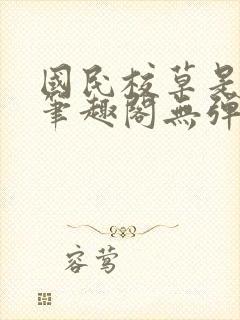 國民校草是
筆趣閣無彈
容莺